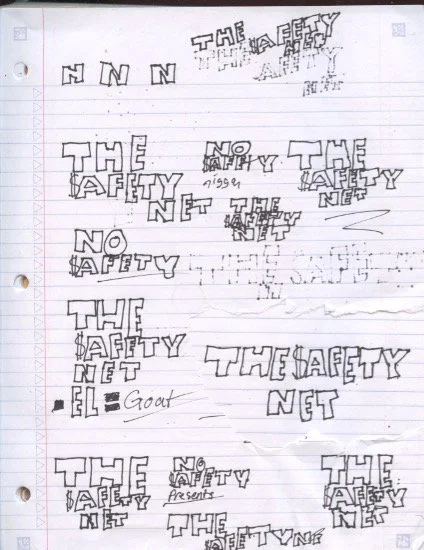 THE $AFETY
NET
THE
AFETY
NET
N N N
THE
$AFETY
NET
NO
$AFETY
THE
$AFETY
NET
THE
$AFETY
NET
NO
$AFETY
THE $AFETY
THE
$AFETY
NET
EL = Goat
THE $AFETY
NET
THE
$AFETY
NET
NO
$AFETY
Presents
THE
$AFETY NE
THE
$AFETY
NET